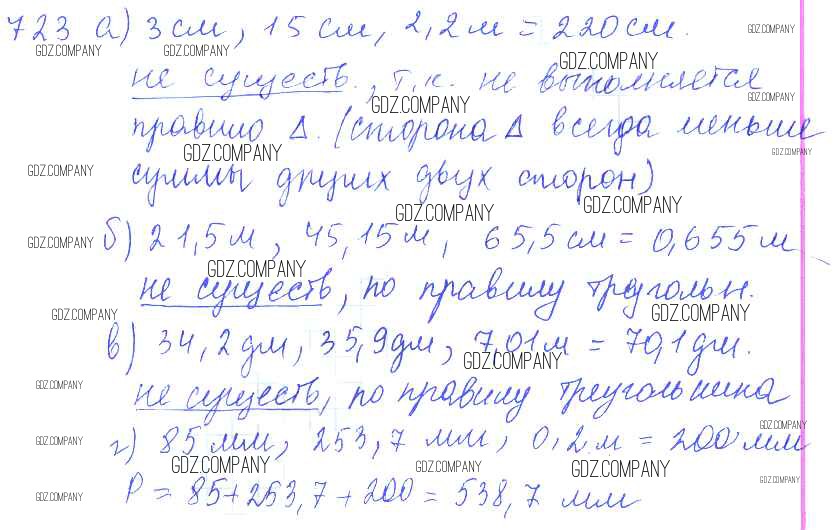 723 а) 3 см, 15 см, 2,2 м = 220 см.
GDZ.COMPANY GDZ.COMPANY GDZ.COMPANY GDZ.COMPANY GDZ.COMPANY
не существ., т.к. не выполняется
GDZ.COMPANY GDZ.COMPANY
правило Δ. (сторона Δ всегда меньше
GDZ.COMPANY GDZ.COMPANY
GDZ.COMPANY суммы других двух сторон)
GDZ.COMPANY GDZ.COMPANY
GDZ.COMPANY б) 21,5 м, 45,15 м, 65,5 см = 0,655 м
GDZ.COMPANY
не существ, по правилу треугольн.
GDZ.COMPANY GDZ.COMPANY
в) 34,2 дм, 35,9 дм, 7,01 м = 70,1 дм.
GDZ.COMPANY
GDZ.COMPANY не существ, по правилу треугольника
GDZ.COMPANY
GDZ.COMPANY г) 85 мм, 253,7 мм, 0,2 м = 200 мм
GDZ.COMPANY GDZ.COMPANY GDZ.COMPANY GDZ.COMPANY
GDZ.COMPANY P = 85 + 253,7 + 200 = 538,7 мм